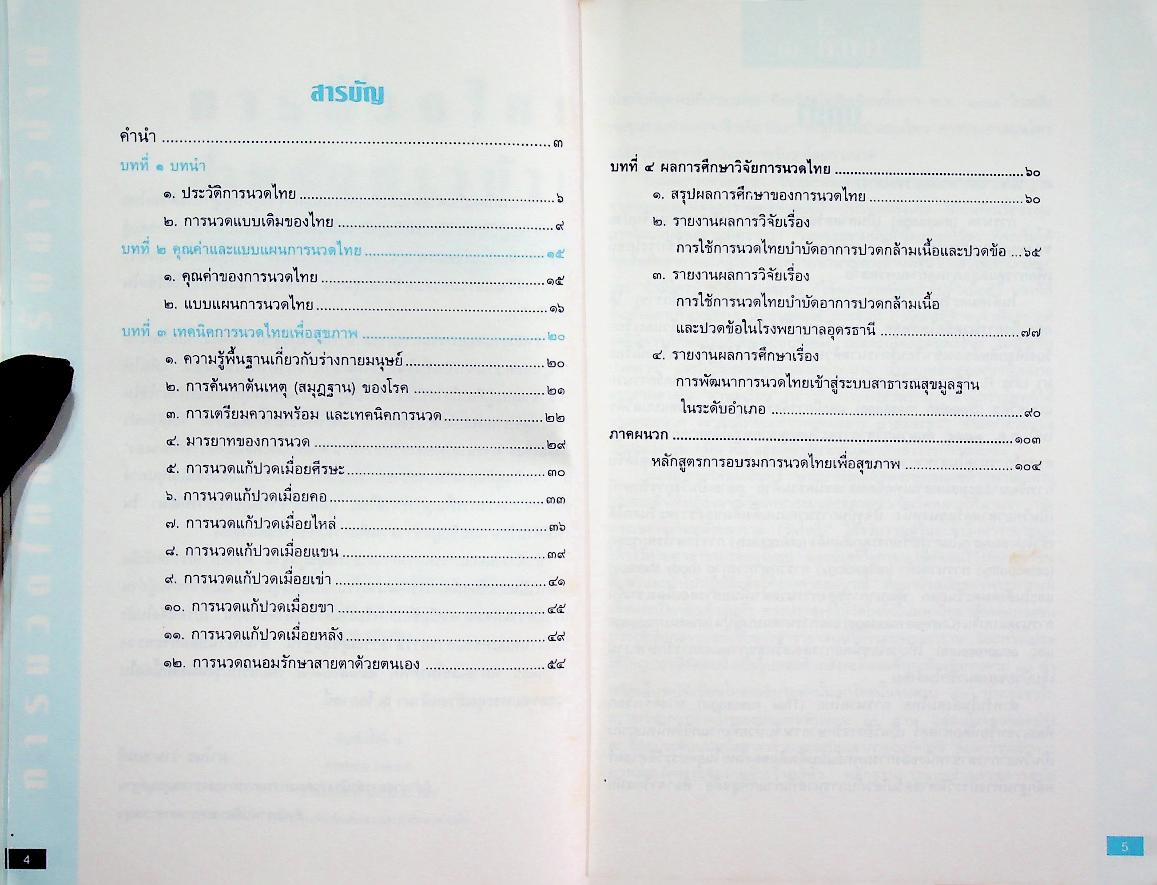 สารบัญ
คำนำ ........ ๓
บทที่ ๑ บทนำ
๑. ประวัติการนวดไทย ........ ๖
๒. การนวดแบบเดิมของไทย ........ ๙
บทที่ ๒ คุณค่าและแบบแผนการนวดไทย ........ ๑๕
๑. คุณค่าของการนวดไทย ........ ๑๕
๒. แบบแผนการนวดไทย ........ ๑๖
บทที่ ๓ เทคนิคการนวดไทยเพื่อสุขภาพ ........ ๒๐
๑. ความรู้พื้นฐานเกี่ยวกับร่างกายมนุษย์ ........ ๒๐
๒. การค้นหาต้นเหตุ (สมุฎฐาน) ของโรค ........ ๒๑
๓. การเตรียมความพร้อม และเทคนิคการนวด ........ ๒๒
๔. มารยาทของการนวด ........ ๒๙
๕. การนวดแก้ปวดเมื่อยศีรษะ ........ ๓๐
๖. การนวดแก้ปวดเมื่อยคอ ........ ๓๓
๗. การนวดแก้ปวดเมื่อยไหล่ ........ ๓๖
๘. การนวดแก้ปวดเมื่อยแขน ........ ๓๙
๙. การนวดแก้ปวดเมื่อยเข่า ........ ๔๑
๑๐. การนวดแก้ปวดเมื่อยขา ........ ๔๕
๑๑. การนวดแก้ปวดเมื่อยหลัง ........ ๔๙
๑๒. การนวดถนอมรักษาสายตาด้วยตนเอง ........ ๕๔
4
บทที่ ๔ ผลการศึกษาวิจัยการนวดไทย ........ ๖๐
๑. สรุปผลการศึกษาของการนวดไทย ........ ๖๐
๒. รายงานผลการวิจัยเรื่อง
การใช้การนวดไทยบำบัดอาการปวดกล้ามเนื้อและปวดข้อ ... ๖๕
๓. รายงานผลการวิจัยเรื่อง
การใช้การนวดไทยบำบัดอาการปวดกล้ามเนื้อ
และปวดข้อในโรงพยาบาลอุดรธานี ........ ๗๗
๔. รายงานผลการศึกษาเรื่อง
การพัฒนาการนวดไทยเข้าสู่ระบบสาธารณสุขมูลฐาน
ในระดับอำเภอ ........ ๙๐
ภาคผนวก ........ ๑๐๓
หลักสูตรการอบรมการนวดไทยเพื่อสุขภาพ ........ ๑๐๔
5